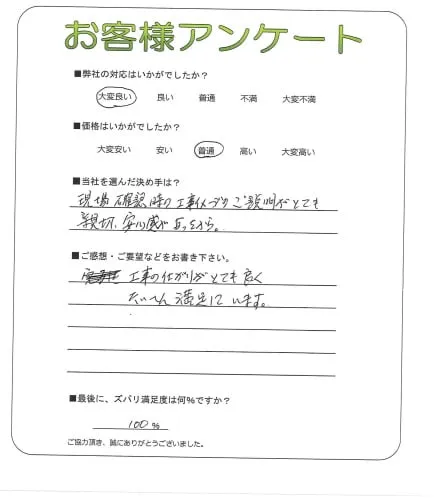 お客様アンケート
■弊社の対応はいかがでしたか?
大変良い 良い 普通 不満 大変不満
■価格はいかがでしたか?
大変安い 安い 普通 高い 大変高い
■当社を選んだ決め手は?
現場確認時の工事内容のご説明がとても
親切、安心感があったから。
■ご感想・ご要望などをお書き下さい。
工事の仕上がりがとても良く
たいへん満足しています。
■最後に、ズバリ満足度は何%ですか?
100%
ご協力頂き、誠にありがとうございました。